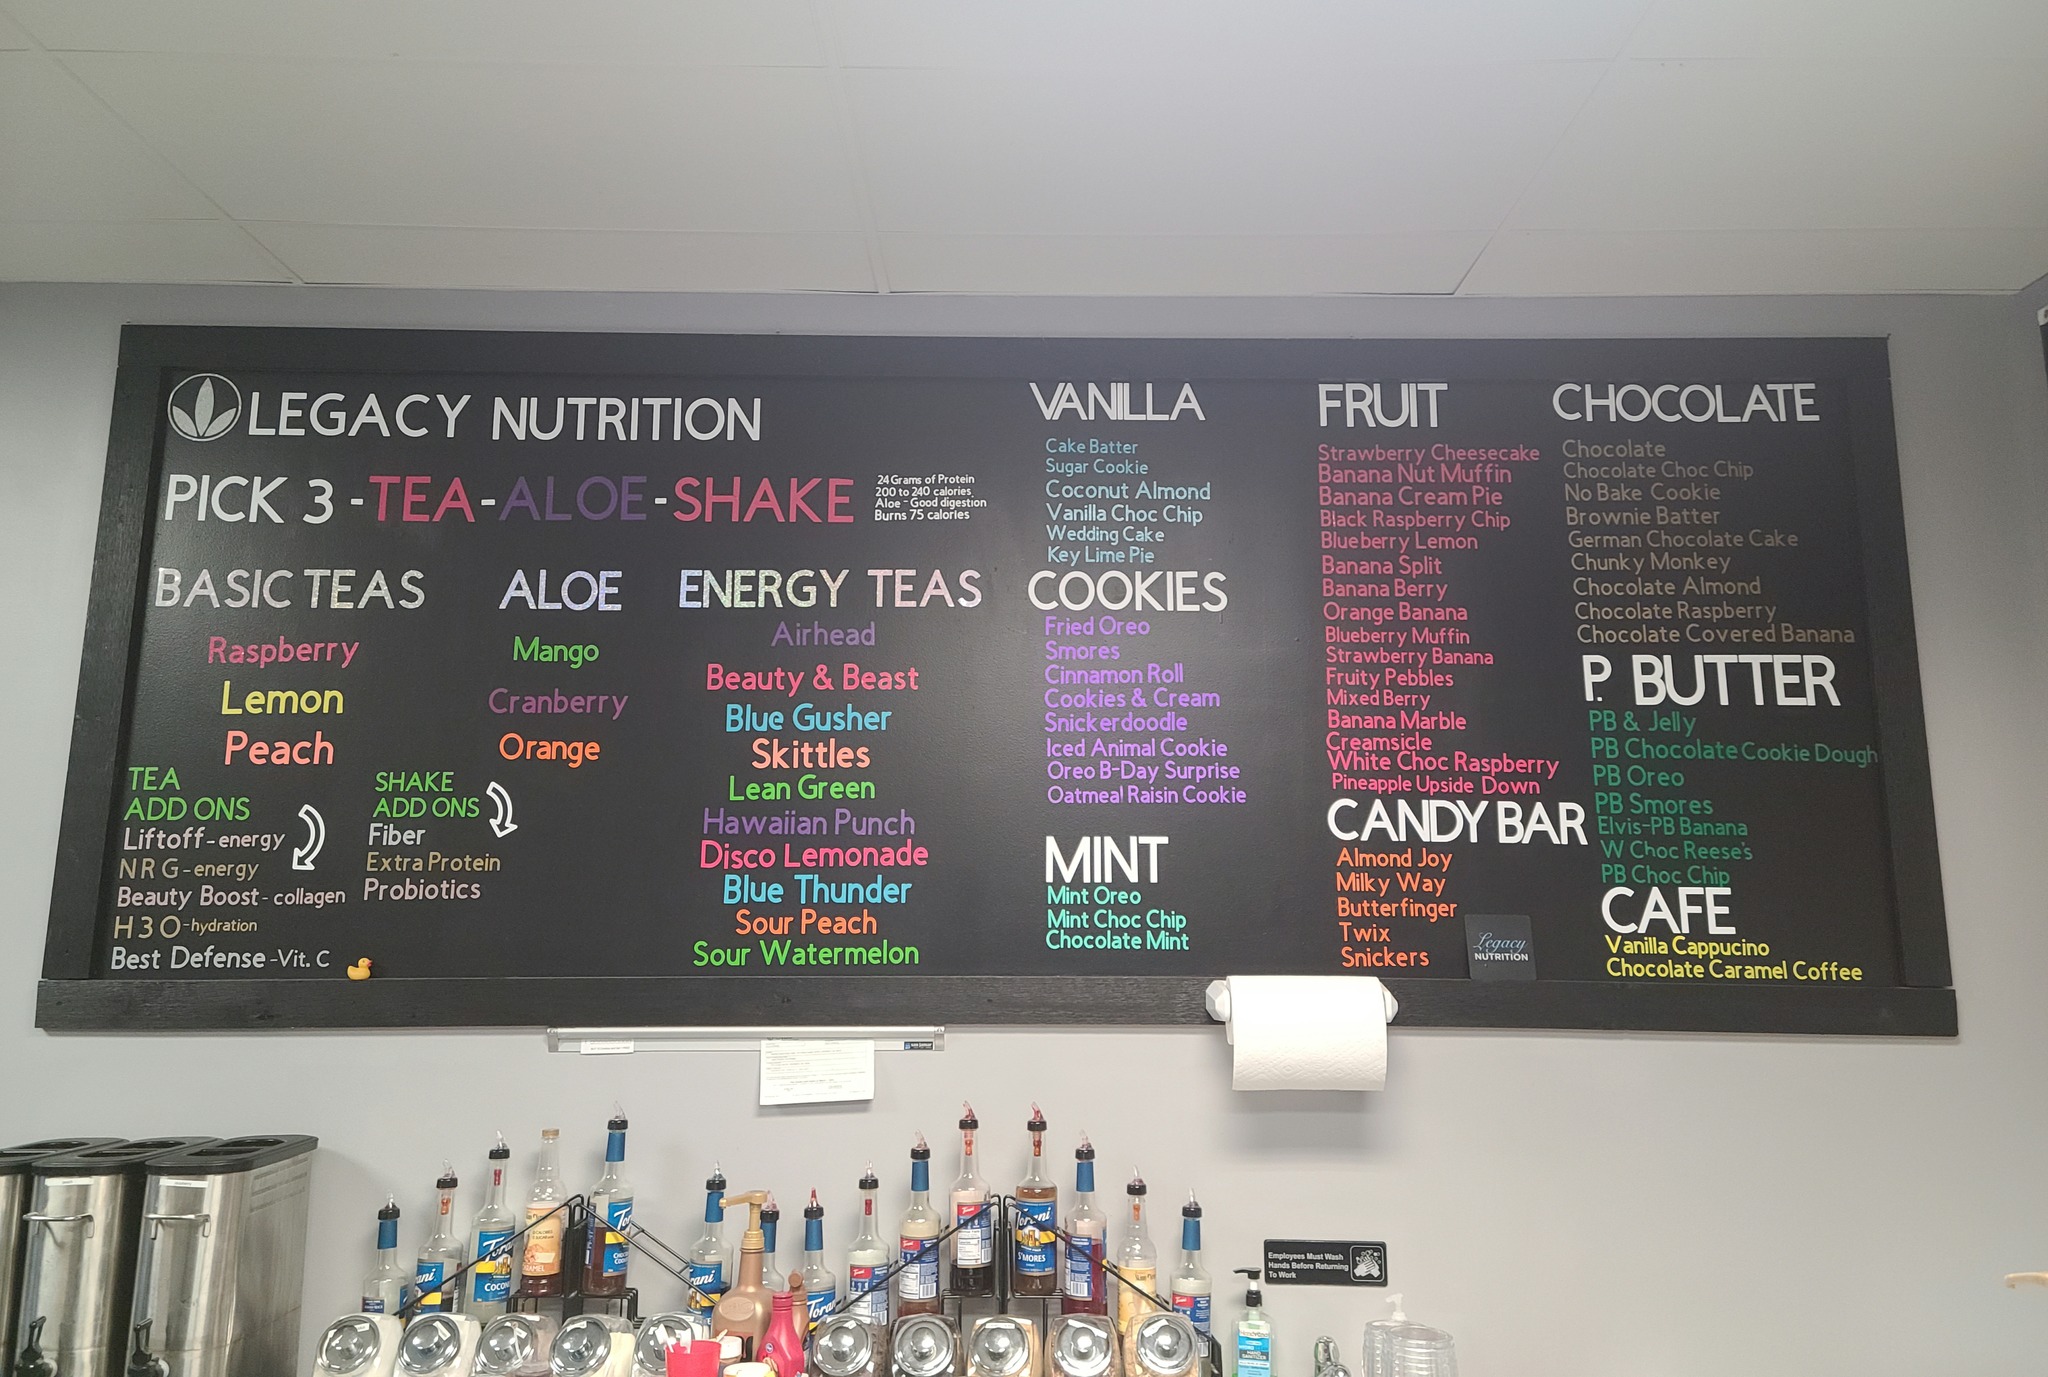 LEGACY NUTRITION
PICK 3 - TEA - ALOE - SHAKE
24 Grams of Protein
200 to 240 calories
Aloe - Good digestion
Burns 75 calories
BASIC TEAS
Raspberry
Lemon
Peach
ALOE
Mango
Cranberry
Orange
TEA
ADD ONS
Liftoff - energy
NRG - energy
Beauty Boost - collagen
H3O - hydration
Best Defense - Vit. C
SHAKE
ADD ONS
Fiber
Extra Protein
Probiotics
ENERGY TEAS
Airhead
Beauty & Beast
Blue Gusher
Skittles
Lean Green
Hawaiian Punch
Disco Lemonade
Blue Thunder
Sour Peach
Sour Watermelon
VANILLA
Cake Batter
Sugar Cookie
Coconut Almond
Vanilla Choc Chip
Wedding Cake
Key Lime Pie
COOKIES
Fried Oreo
Smores
Cinnamon Roll
Cookies & Cream
Snickerdoodle
Iced Animal Cookie
Oreo B-Day Surprise
Oatmeal Raisin Cookie
MINT
Mint Oreo
Mint Choc Chip
Chocolate Mint
FRUIT
Strawberry Cheesecake
Banana Nut Muffin
Banana Cream Pie
Black Raspberry Chip
Blueberry Lemon
Banana Split
Banana Berry
Orange Banana
Blueberry Muffin
Strawberry Banana
Fruity Pebbles
Mixed Berry
Banana Marble
Creamsicle
White Choc Raspberry
Pineapple Upside Down
CANDY BAR
Almond Joy
Milky Way
Butterfinger
Twix
Snickers
Legacy
NUTRITION
CHOCOLATE
Chocolate
Chocolate Choc Chip
No Bake Cookie
Brownie Batter
German Chocolate Cake
Chunky Monkey
Chocolate Almond
Chocolate Raspberry
Chocolate Covered Banana
P. BUTTER
PB & Jelly
PB Chocolate Cookie Dough
PB Oreo
PB Smores
Elvis-PB Banana
W Choc Reese's
PB Choc Chip
CAFE
Vanilla Cappucino
Chocolate Caramel Coffee
Torani
Torani
S'MORES
Torani
Employees Must Wash
Hands Before Returning
To Work
HAND
SANITIZER